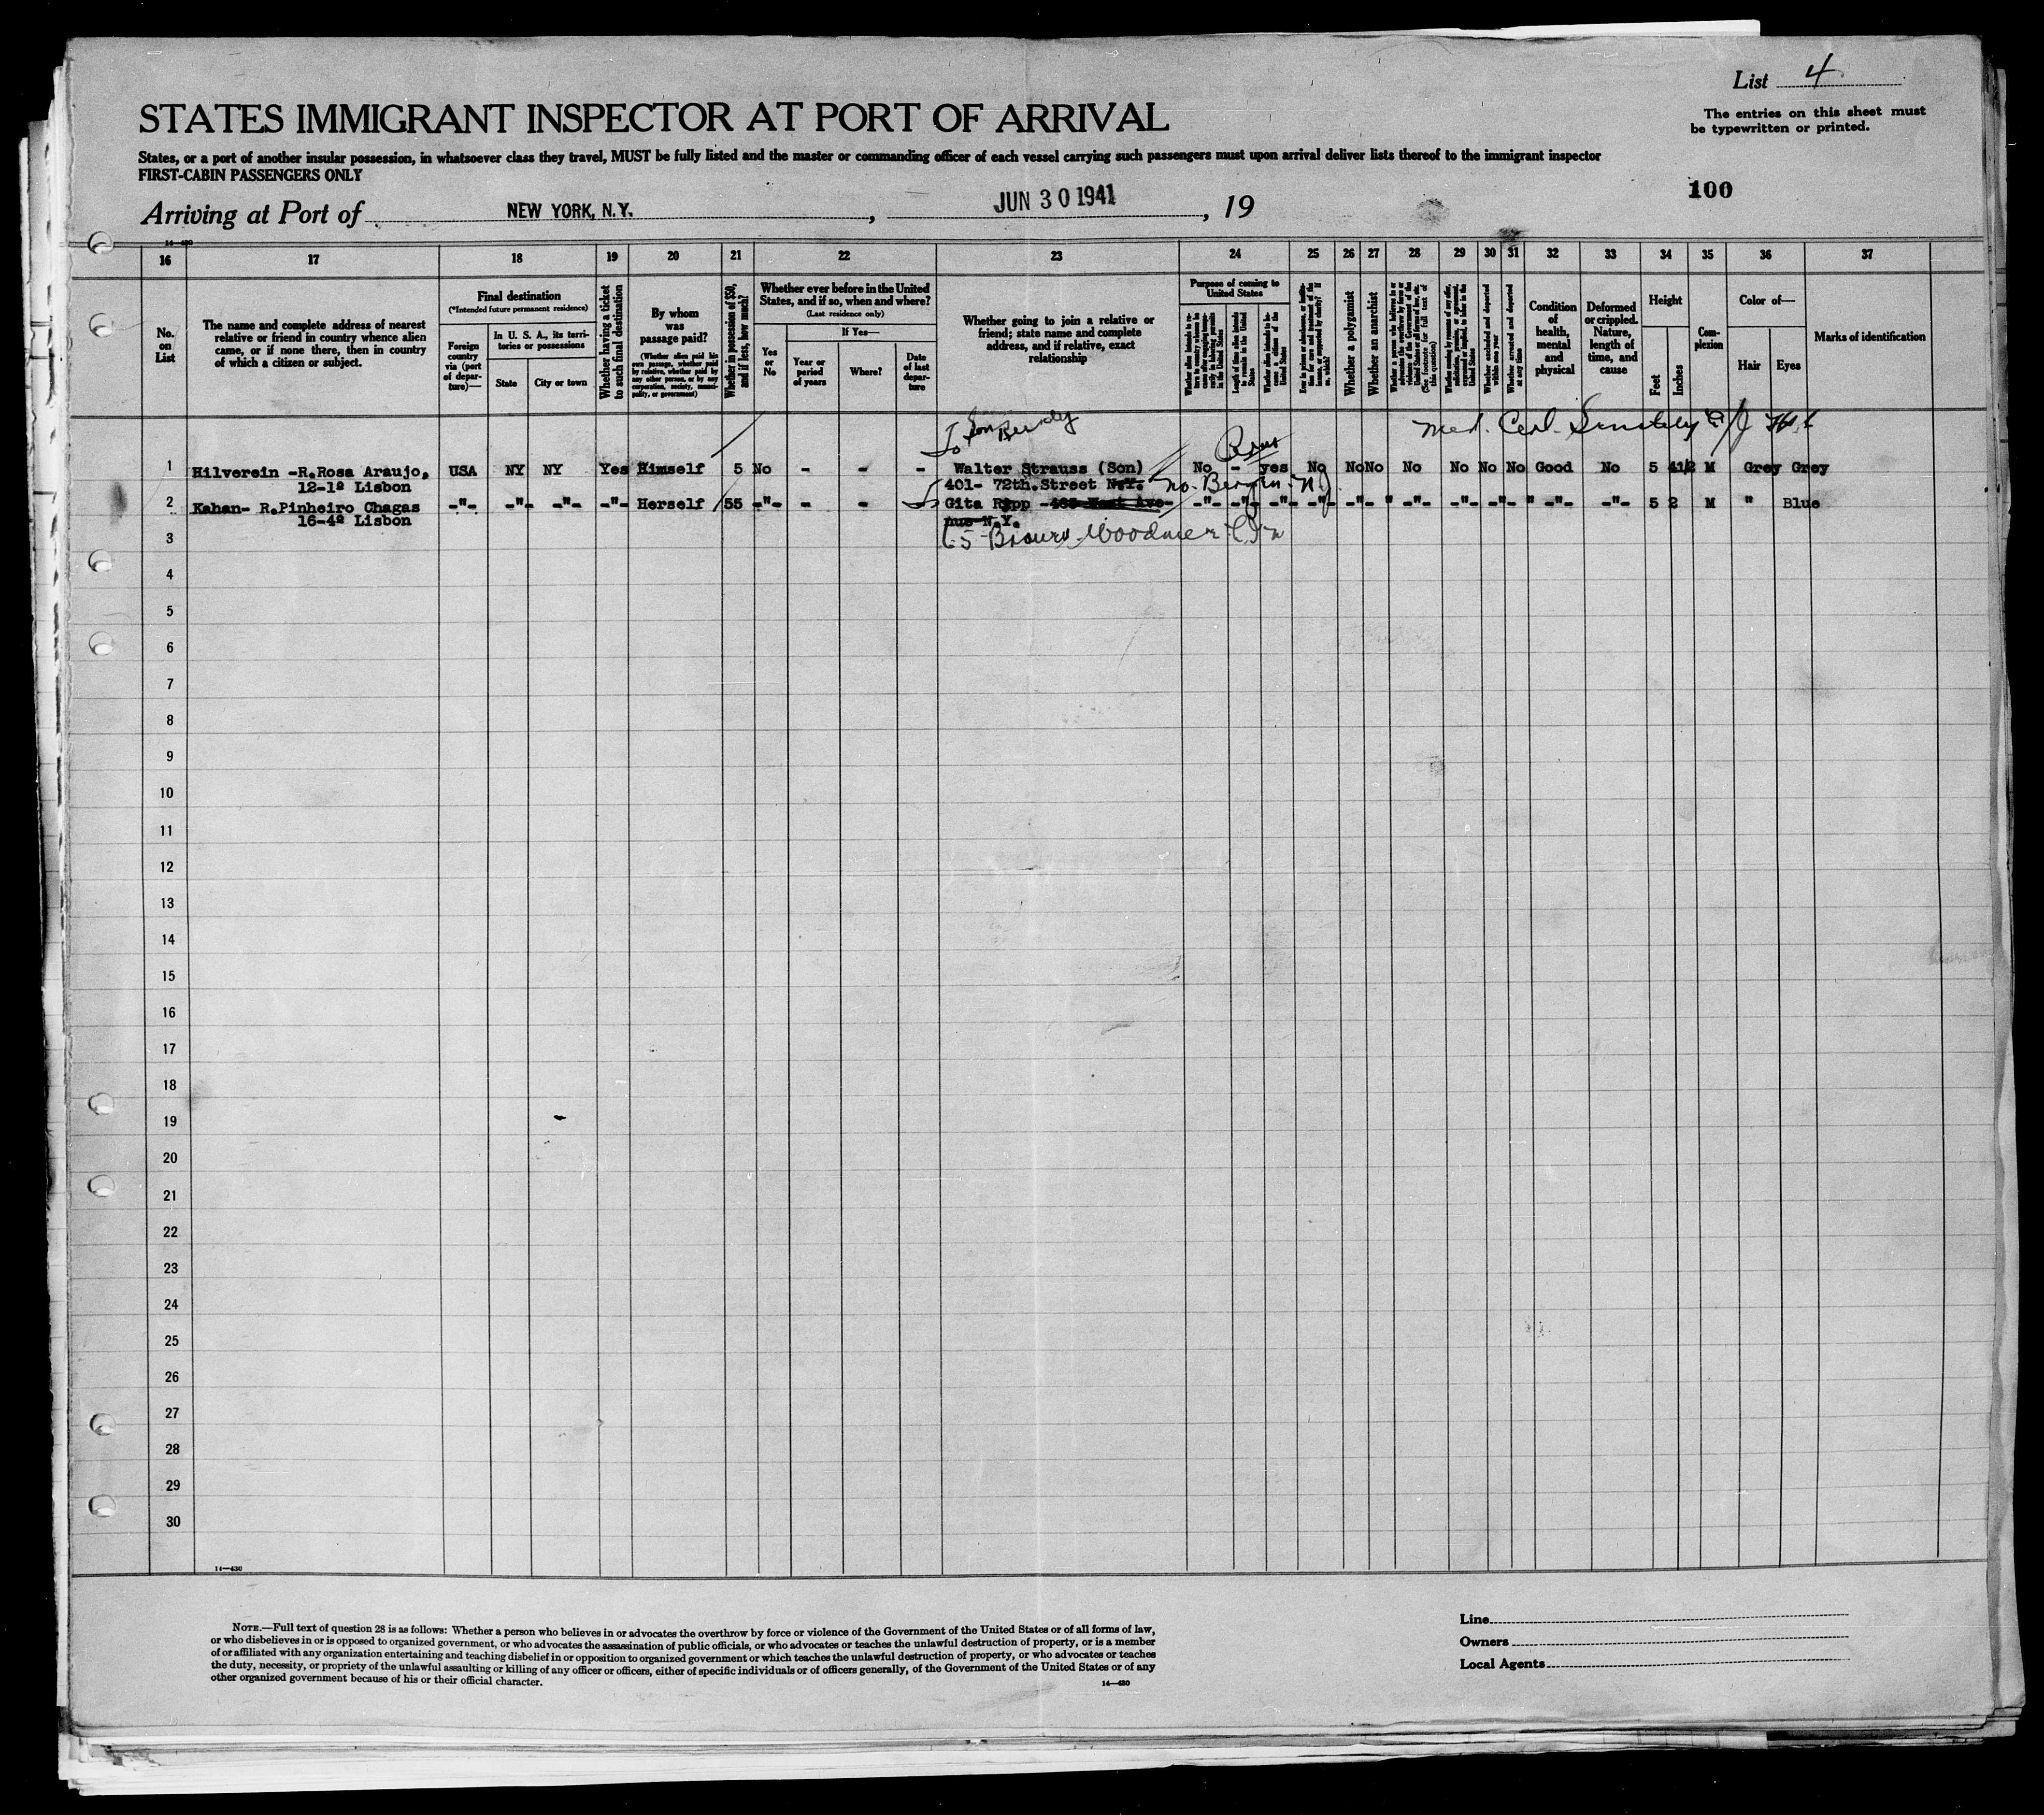 List 4
STATES IMMIGRANT INSPECTOR AT PORT OF ARRIVAL
The entries on this sheet must
be typewritten or printed.
States, or a port of another insular possession, in whatsoever class they travel, MUST be fully listed and the master or commanding officer of each vessel carrying such passengers must upon arrival deliver lists thereof to the immigrant inspector
FIRST-CABIN PASSENGERS ONLY
100
Arriving at Port of NEW YORK, N.Y. , JUN 30 1941 , 19
14—430
16 17 18 19 20 21 22 23 24 25 26 27 28 29 30 31 32 33 34 35 36 37
No. on List
The name and complete address of nearest relative or friend in country whence alien came, or if none there, then in country of which a citizen or subject.
Final destination
(*Intended future permanent residence)
Foreign country via (port of departure)—
In U. S. A., its territories or possessions
State
City or town
Whether having a ticket to such final destination
By whom was passage paid?
(Whether alien paid his own passage, whether paid by relative, whether paid by any other person, or by any corporation, society, municipality, or government)
Whether in possession of $50, and if less, how much?
Whether ever before in the United States, and if so, when and where?
(Last residence only)
Yes or No
If Yes—
Year or period of years
Where?
Date of last departure
Whether going to join a relative or friend; state name and complete address, and if relative, exact relationship
Purpose of coming to United States
Length of time alien intends to remain in the United States
Whether alien intends to become a citizen of the United States
Whether a polygamist
Whether an anarchist
(See footnote for full text of this question)
Whether excluded and deported within one year
Whether arrested and deported at any time
Condition of health, mental and physical
Deformed or crippled. Nature, length of time, and cause
Height
Feet
Inches
Complexion
Color of—
Hair
Eyes
Marks of identification
To Son
Med. Cert.
1 Hilverein -R.Rosa Araujo, USA NY NY Yes Himself 5 No - - - Walter Strauss (Son) No - yes No No No No No No No Good No 5 41/2 M Grey Grey
12-1º Lisbon 401- 72th.Street N.Y. No. Bergen N.J.
2 Kahan- R.Pinheiro Chagas -"- -"- -"- -"- Herself 55 -"- - - - Gita Ripp -465 West Ave- -"- -"- -"- -"- -"- -"- " -"- -"- -"- -"- " -"- -"- 5 2 M " Blue
16-4º Lisbon nue N.Y.
3
4
5
6
7
8
9
10
11
12
13
14
15
16
17
18
19
20
21
22
23
24
25
26
27
28
29
30
14—430
NOTE.—Full text of question 28 is as follows: Whether a person who believes in or advocates the overthrow by force or violence of the Government of the United States or of all forms of law,
or who disbelieves in or is opposed to organized government, or who advocates the assassination of public officials, or who advocates or teaches the unlawful destruction of property, or is a member
of or affiliated with any organization entertaining and teaching disbelief in or opposition to organized government or which teaches the unlawful destruction of property, or who advocates or teaches
the duty, necessity, or propriety of the unlawful assaulting or killing of any officer or officers, either of specific individuals or of officers generally, of the Government of the United States or of any
other organized government because of his or their official character.
14—430
Line
Owners
Local Agents